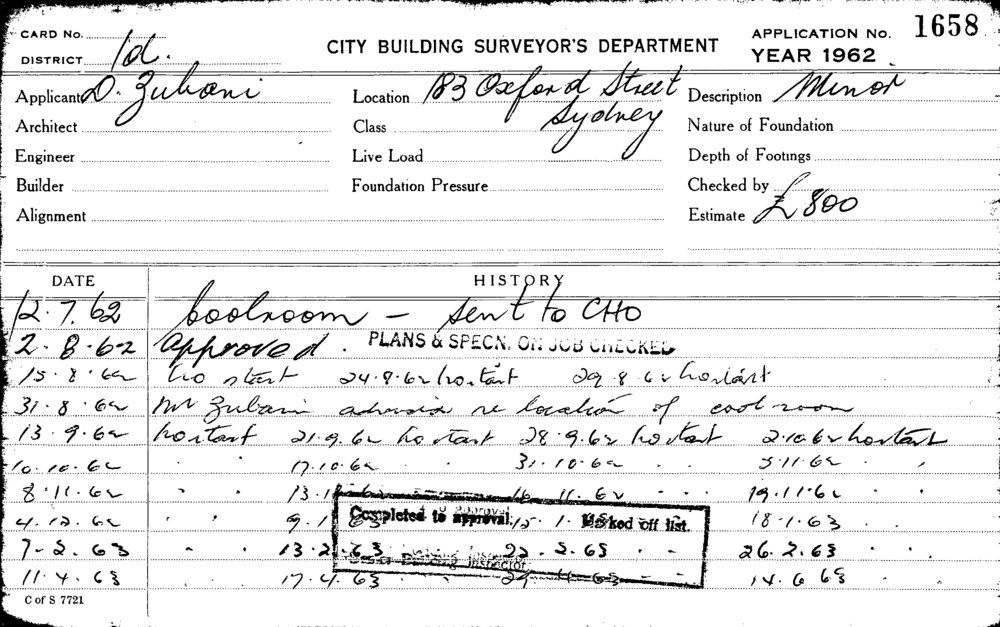 CARD No.
DISTRICT 1d.
CITY BUILDING SURVEYOR'S DEPARTMENT
APPLICATION No. 1658
YEAR 1962
Applicant D. Zubani
Location 183 Oxford Street
Sydney
Description Minor
Architect
Class
Nature of Foundation
Engineer
Live Load
Depth of Footings
Builder
Foundation Pressure
Checked by
Alignment
Estimate £800
DATE HISTORY
12.7.62 Coolroom - sent to CHO
2.8.62 Approved. PLANS & SPECN. ON JOB CHECKED
15.8.62 no start 24.8.62 no start 29.8.62 no start
31.8.62 Mr Zubani advised re location of cool room
13.9.62 no start 21.9.62 no start 28.9.62 no start 2.10.62 no start
10.10.62 " " 17.10.62 " " 31.10.62 " " 5.11.62 " "
8.11.62 " " 13.1 16.11.62 " " 19.11.62 " "
4.12.62 " " 9.1.63 Completed to approval. 1. Marked off list. 18.1.63 " "
7-2.63 " " 13.2.63 22.2.63 " " 26.2.63 " "
Building Inspector
11.4.63 17.4.63 24.4.63 - - 14.6.63
C of S 7721